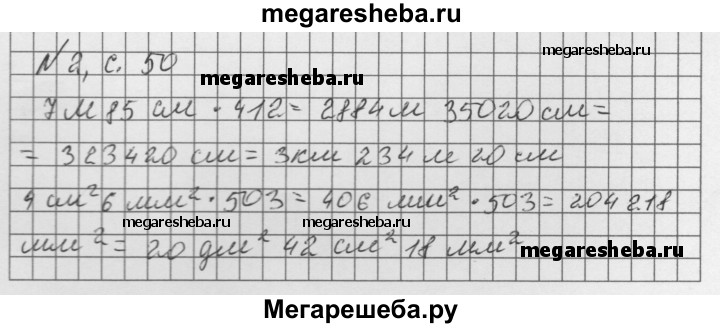 megaresheba.ru
megaresheba.ru
№ 2, с. 50
megaresheba.ru
7 м 85 см · 412 = 2884 м 35020 см =
= 323420 см = 3 км 234 м 20 см
4 см² 6 мм² · 503 = 406 мм² · 503 = 204218
megaresheba.ru megaresheba.ru
мм² = 20 дм² 42 см² 18 мм²
megaresheba.ru
Мегарешеба.ру